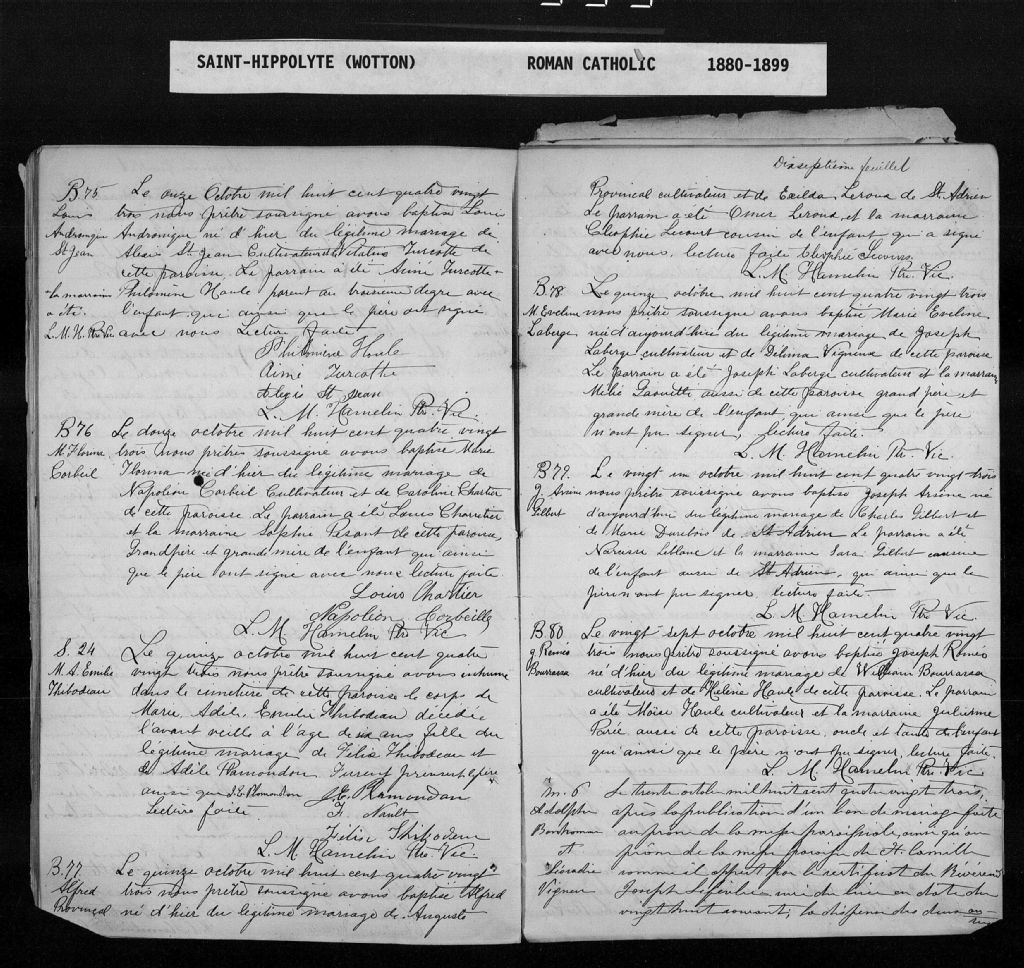 SAINT-HIPPOLYTE (WOTTON) ROMAN CATHOLIC 1880-1899
B 75 Le onze Octobre mil huit cent quatre vingt
Louis trois nous prêtre soussigné avons baptisé Louis
Andronique né d'hier du légitime mariage de
St Jean Alexis St Jean Cultivateur et de Vitaline Turcotte de
cette paroisse. Le parrain a été Aimé Turcotte
la marraine Philomène Houle parent au troisième degré avec
a été. l'enfant qui ainsi que le père ont signé
L. M. H. Ptr Vic avec nous Lecture faite
Philomène Houle
Aimé Turcotte
Alexis St Jean
L. M. Hamelin Ptr. Vic.
B 76 Le douze octobre mil huit cent quatre vingt
M. Florina trois nous prêtre soussigné avons baptisé Marie
Corbeil Florina née d'hier du légitime mariage de
Napoléon Corbeil Cultivateur et de Caroline Chartier
de cette paroisse Le parrain a été Louis Charretier
et la marraine Sophie Pesant de cette paroisse
Grandpère et grande mère de l'enfant qui ainsi
que le père ont signé avec nous lecture faite
Louis Chartier
Napoléon Corbeille
L. M. Hamelin Ptr Vic
S. 24 Le quinze octobre mil huit cent quatre
M. A. Emélie vingt trois nous prêtre soussigné avons inhumé
Thibodeau dans le cimetière de cette paroisse le corps de
Marie, Adèle, Emélie Thibodeau décédée
l'avant veille à l'age de six ans fille du
légitime mariage de Félix Thibodeau et
de Adèle Plamondon Furent présents le père
ainsi que J. E. Plamondon
Lecture faite J. E. Plamondon
F. Nault
Félix Thibodeau
L. M. Hamelin Ptr. Vic.
B. 77 Le quinze octobre mil huit cent quatre vingt
Alfred trois nous prêtre soussigné avons baptisé Alfred
Provincal né d'hier du légitime mariage de Auguste
Dixseptième feuillet
Provincal cultivateur et de Exilda Leroux de St. Adrien
Le parrain a été Omer Leroux et la marraine
Cléophie Lecourt cousin de l'enfant qui a signé
avec nous, lecture faite Cléophie
L. M. Hamelin Ptr. Vic.
B. 78 Le quinze octobre mil huit cent quatre vingt trois
M. Eveline nous prêtre soussigné avons baptisé Marie Eveline
Laberge née d'aujourd'hui du légitime mariage de Joseph
Laberge cultivateur et de Délima Vigneux de cette paroisse
Le parrain a été Joseph Laberge cultivateur et la marraine
aussi de cette paroisse grand père et
grande mère de l'enfant qui ainsi que le père
n'ont pu signer, lecture faite.
L. M. Hamelin Ptr. Vic.
B 79. Le vingt un octobre mil huit cent quatre vingt trois
J. Arsène nous prêtre soussigné avons baptisé Joseph Arsène né
Gilbert d'aujourd'hui du légitime mariage de Charles Gilbert et
de Marie Durebois de St Adrien Le parrain a été
Narcisse Leblanc et la marraine Sara Gilbert cousine
de l'enfant aussi de St Adrien, qui ainsi que le
père n'ont pu signer, lecture faite.
L. M. Hamelin Ptr. Vic
B. 80 Le vingt sept octobre mil huit cent quatre vingt
J. Roméo trois nous prêtre soussigné avons baptisé Joseph Roméo
Bourrassa né d'hier du légitime mariage de William Bourrassa
cultivateur et de Hélène Houle de cette paroisse. Le parrain
a été Moïse Houle cultivateur et la marraine Julienne
aussi de cette paroisse, oncle et tante de l'enfant
qui ainsi que le père n'ont pu signer, lecture faite.
L. M. Hamelin Ptr. Vic
M. 6 Le trente octobre mil huit cent quatre vingt trois,
Adolphe après la publication d'un ban de mariage faite
au prône de la messe paroissiale, ainsi qu'au
et prône de la messe paroissiale de St. Camille
comme il appert par le certificat du Révérend
Vigneux Joseph curé du lieu en date du
vingt huit courant; la dispense des deux au-